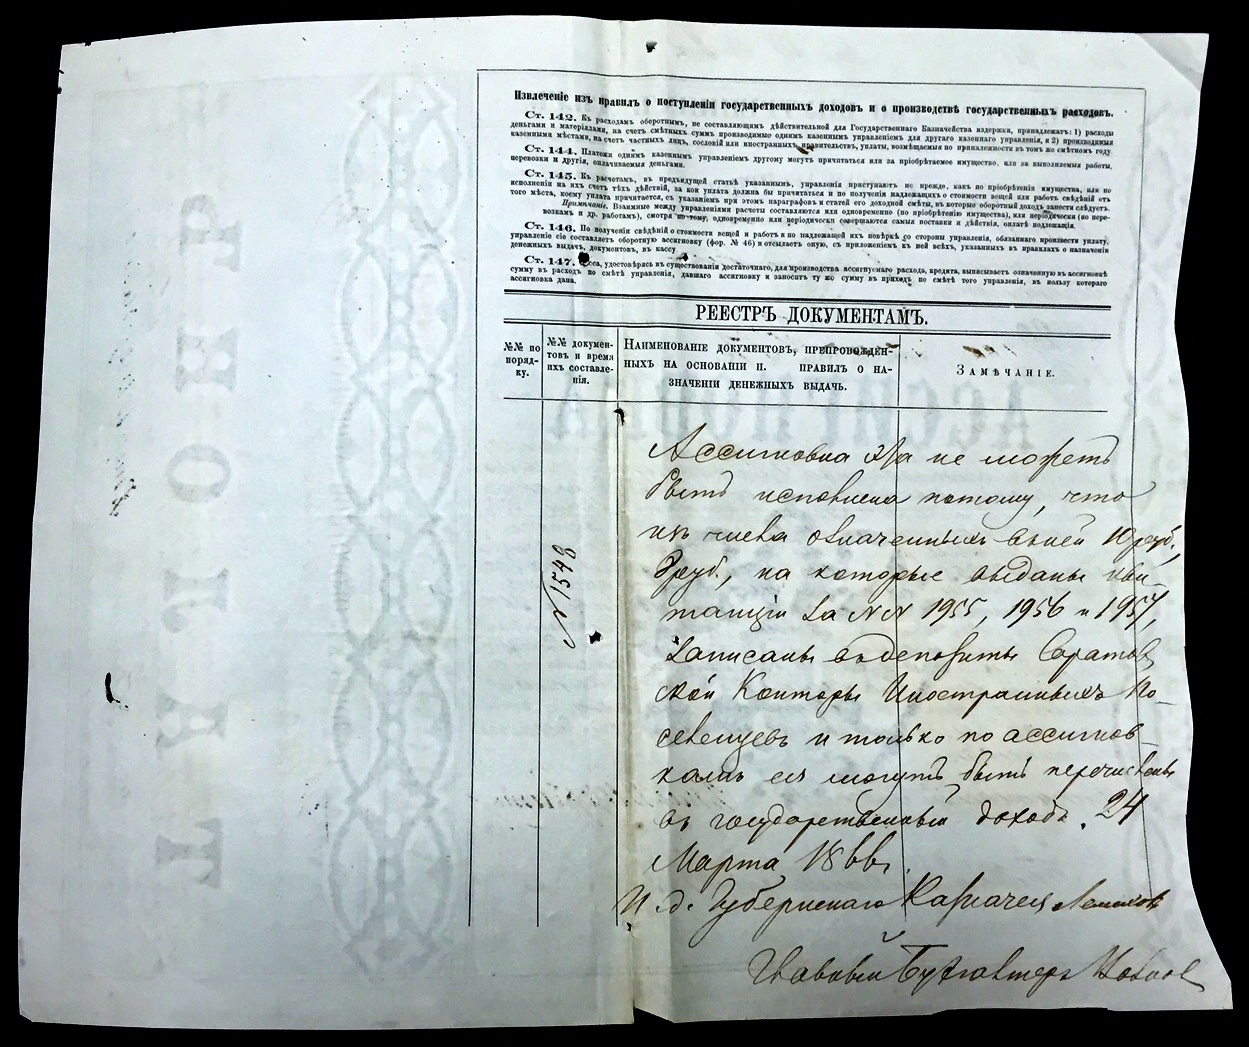 Извлеченіе изъ правилъ о поступленіи государственныхъ доходовъ и о производствѣ государственныхъ расходовъ.
Ст. 142. Къ расходамъ оборотнымъ, не составляющимъ дѣйствительной для Государственнаго Казначейства издержки, принадлежатъ: 1) расходы
деньгами и матеріалами, на счетъ смѣтныхъ суммъ производимые однимъ казеннымъ управленіемъ для другаго казеннаго управленія, и 2) производимыя
казенными мѣстами, на счетъ частныхъ лицъ, сословій или иностранныхъ правительствъ, уплаты, возмѣщаемыя по принадлежности въ томъ же смѣтномъ году.
Ст. 144. Платежи однимъ казеннымъ управленіемъ другому могутъ причитаться или за пріобрѣтаемое имущество, или за выполняемыя работы,
перевозки и другія, оплачиваемыя деньгами.
Ст. 145. Къ расчетамъ, въ предъидущей статьѣ указаннымъ, управленія приступаютъ не прежде, какъ по пріобрѣтеніи имущества, или по
исполненіи на ихъ счетъ тѣхъ дѣйствій, за кои уплата должна бы причитаться и по полученіи надлежащихъ о стоимости вещей или работъ свѣдѣній отъ
того мѣста, коему уплата причитается, съ указаніемъ при этомъ параграфовъ и статей его доходной смѣты, въ которые оборотный доходъ занести слѣдуетъ.
Примѣчаніе. Взаимные между управленіями расчеты составляются или одновременно (по пріобрѣтеніи имущества), или періодически (по пере-
возкамъ и др. работамъ), смотря по тому, одновременно или періодически совершаются самыя поставки и дѣйствія, оплатѣ подлежащія.
Ст. 146. По полученіи свѣдѣній о стоимости вещей и работъ и по надлежащей ихъ повѣркѣ со стороны управленія, обязаннаго произвести уплату,
управленіе сіе составляетъ оборотную ассигновку (фор. № 46) и отсылаетъ оную, съ приложеніемъ къ ней всѣхъ, указанныхъ въ правилахъ о назначеніи
денежныхъ выдачъ, документовъ, въ кассу.
Ст. 147. Касса, удостовѣрясь въ существованіи достаточнаго, для производства ассигнуемаго расхода, кредита, выписываетъ означенную въ ассигновкѣ
сумму въ расходъ по смѣтѣ управленія, давшаго ассигновку и заноситъ ту же сумму въ приходъ по смѣтѣ того управленія, въ пользу котораго
ассигновка дана.
РЕЕСТРЪ ДОКУМЕНТАМЪ.
№№ по
поряд-
ку.
№№ докумен-
товъ и время
ихъ составле-
нія.
Наименованіе документовъ, препровожден-
ныхъ на основаніи п. правилъ о на-
значеніи денежныхъ выдачъ.
Замѣчаніе.
Ассигновка эта не можетъ
быть исполнена потому, что
изъ числа означенныхъ въ ней 10 руб.,
руб., на которые выданы кви-
танціи за №№ 1955, 1956 и 1957,
записаны въ депозиты Саратов
ской Конторы Иностранныхъ По-
селенцевъ и только по ассигнов-
камъ ея могутъ быть перечислены
въ государственный доходъ. 24
Марта 1866.
И. д. Губернскаго Казначея
Главный Бухгалтеръ
№ 1548